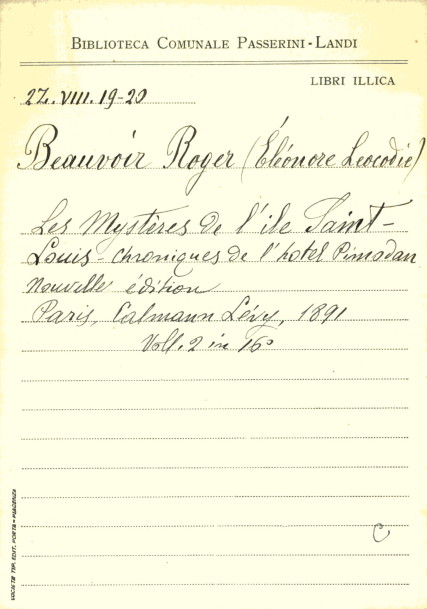 BIBLIOTECA COMUNALE PASSERINI-LANDI
LIBRI ILLICA
2Z.VIII.19-20
Beauvoir Roger (Éléonore Leocodie)
Les Mystères de l'ile Saint-
Louis - chroniques de l'hotel Pimodan
Nouvelle édition
Paris, Calmann Lévy, 1891
Voll. 2 in 16°
C
SOCIETÀ TIP. EDIT. PORTA - PIACENZA